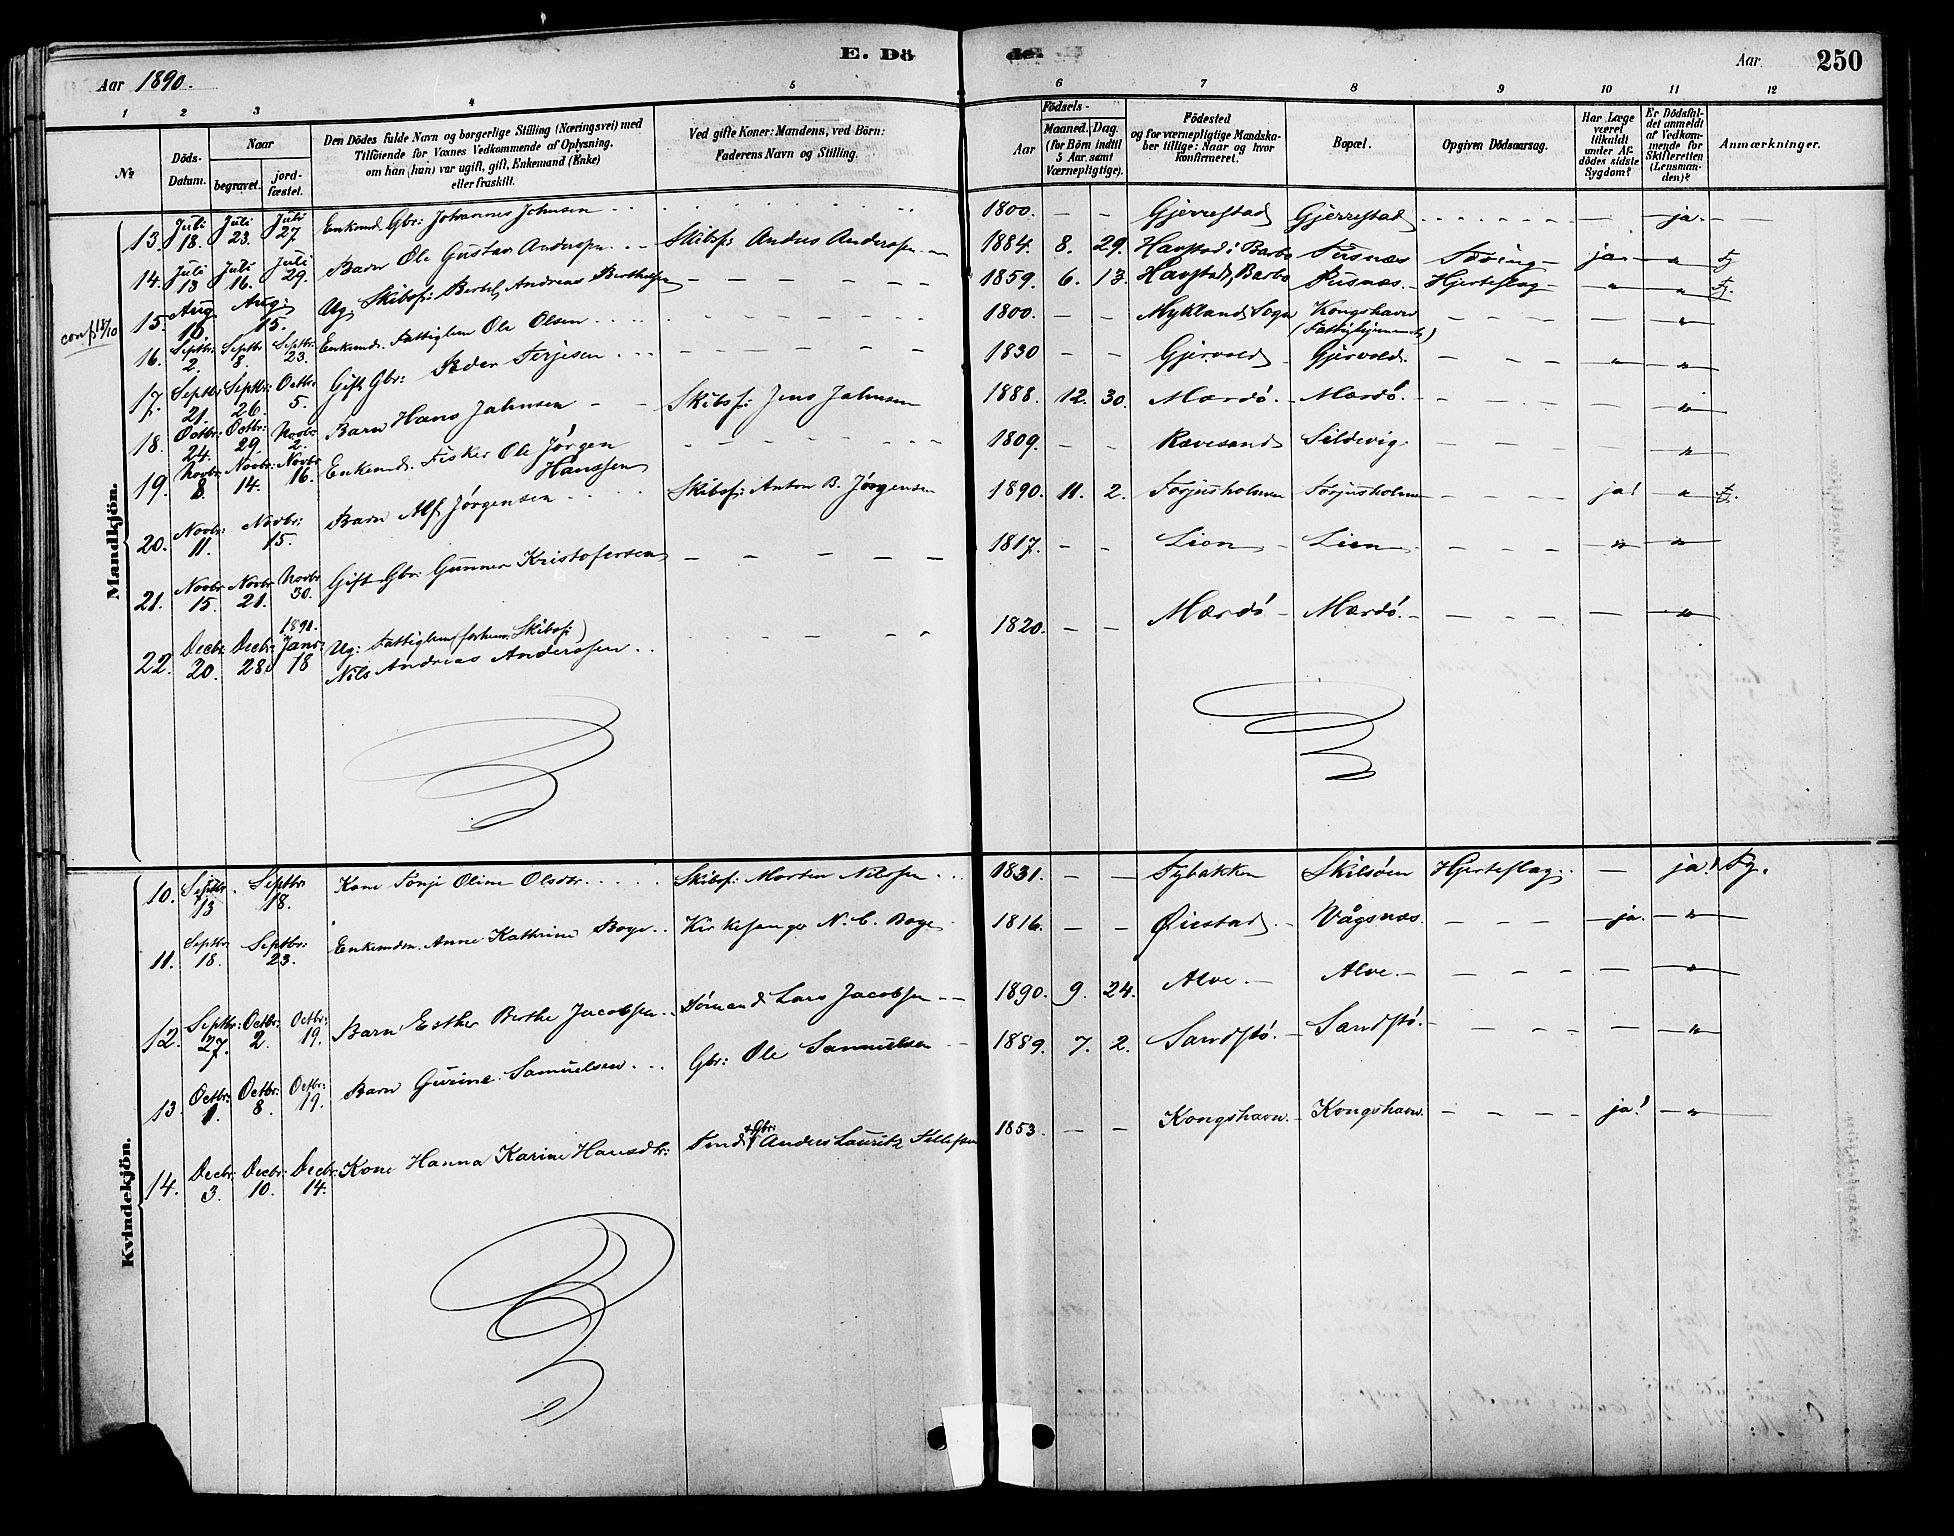 E. Dö de.
250
Aar 1890.
Aar
1 2 3 4 5 6 7 8 9 10 11 12
No
Döds-Datum.
Naar
begravet.
jord-fæstet.
Den Dödes fulde Navn og borgerlige Stilling (Næringsvei) med
Tilföiende for Voxnes Vedkommende af Oplysning,
om han (hun) var ugift, gift, Enkemand (Enke)
eller fraskilt.
Ved gifte Koner: Mandens, ved Börn:
Faderens Navn og Stilling.
Födsels-
Aar
Maaned.
Dag.
(for Börn indtil
5 Aar samt
Værnepligtige).
Födested
og for værnepligtige Mandska-
ber tillige: Naar og hvor
konfirmeret.
Bopæl.
Opgiven Dödsaarsag.
Har Læge
været
tilkaldt
under Af-
dödes sidste
Sygdom?
Er Dödsfal-
det anmeldt
af Vedkom-
mende for
Skifteretten
(Lensman-
den)?
Anmærkninger.
Mandkjön.
13. Juli 18. Juli 23. Juli 27. Enkemd. Gbr: Johannes Johnsen 1800. — — Gjerrestad Gjerrestad — ja. —
14. Juli 13 Juli 16. Juli 29. Barn Ole Gustav Anderssen Skibsf: Anders Anderssen 1884. 8. 29. Havstad i Barbo Pusnæs ja. "
conf 18/10
15. Aug. 10. Aug: 15. Ug. Skibsf: Bertel Andreas Berthelsen 1859. 6. 13. Havstad, Barbo Pusnæs. Hjerteslag " "
16. Septbr. 2. Septbr 8. Septbr: 23. Enkemd. Fattiglem Ole Olsen 1800. — — Mykland Sogn Kongshavn — "
17. Septbr 21. Septbr: 26. Octbr: 5. Gift Gbr: Peder Terjesen 1830 — — Gjervold Gjervold. " "
18. Octbr: 24. Octbr: 29. Novbr: 2. Barn Hans Jahnsen Skibsf: Jens Jahnsen 1888. 12. 30. Mærdö. Mærdö. — "
19. Novbr: 8. Novbr: 14. Novbr 16. Enkemd. Fisker Ole Jørgen
Hanssen 1809. — — Ravesand Sildevig. — "
20. Novbr: 11. Novbr: 15. Barn Alf Jørgensen Skibsf: Anton B. Jørgensen 1890. 11. 2. Torjusholmen Torjusholmen ja! "
21. Novbr 15. Novbr 21. Novbr 30. Gift Gbr: Gunner Kristofersen 1817. — — Lien Lien " "
22. Decbr. 20. Decbr: 28. 1891. Janr: 18 Ug: Fattiglem (forhen. Skibsf:)
Nils Andreas Anderssen 1820. — — Mærdö Mærdö. — "
Kvindekjön.
10. Septbr. 13 Septbr 18. Kone Tonje Oline Olsdtr. Skibsf: Morten Nilssen 1831. — — Tybakken Skilsöen Hjerteslag. — ja!
11. Septbr. 18. Septbr: 23. Enkemdm. Anne Kathrine Boye Kirkesanger N. C. Boye 1816. — — Øiestad Vågsnæs. ja. "
12. Septbr: 27. Octbr: 2. Octbr: 19. Barn Esther Berthe Jacobsen Sömand Lars Jacobsen 1890. 9. 24. Alve. Alve. — "
13. Octbr: 1. Octbr: 8. Octbr: 19. Barn Gurine Samuelsen Gbr: Ole Samuelsen 1889. 7. 2. Sandstö. Sandstö. — "
14. Decbr: 3. Decbr: 10. Decbr: 14. Kone Hanna Karine Hansdtr: Gbr: Anders Lauritz Tellefsen 1853. — — Kongshavn. Kongshavn. ja! "